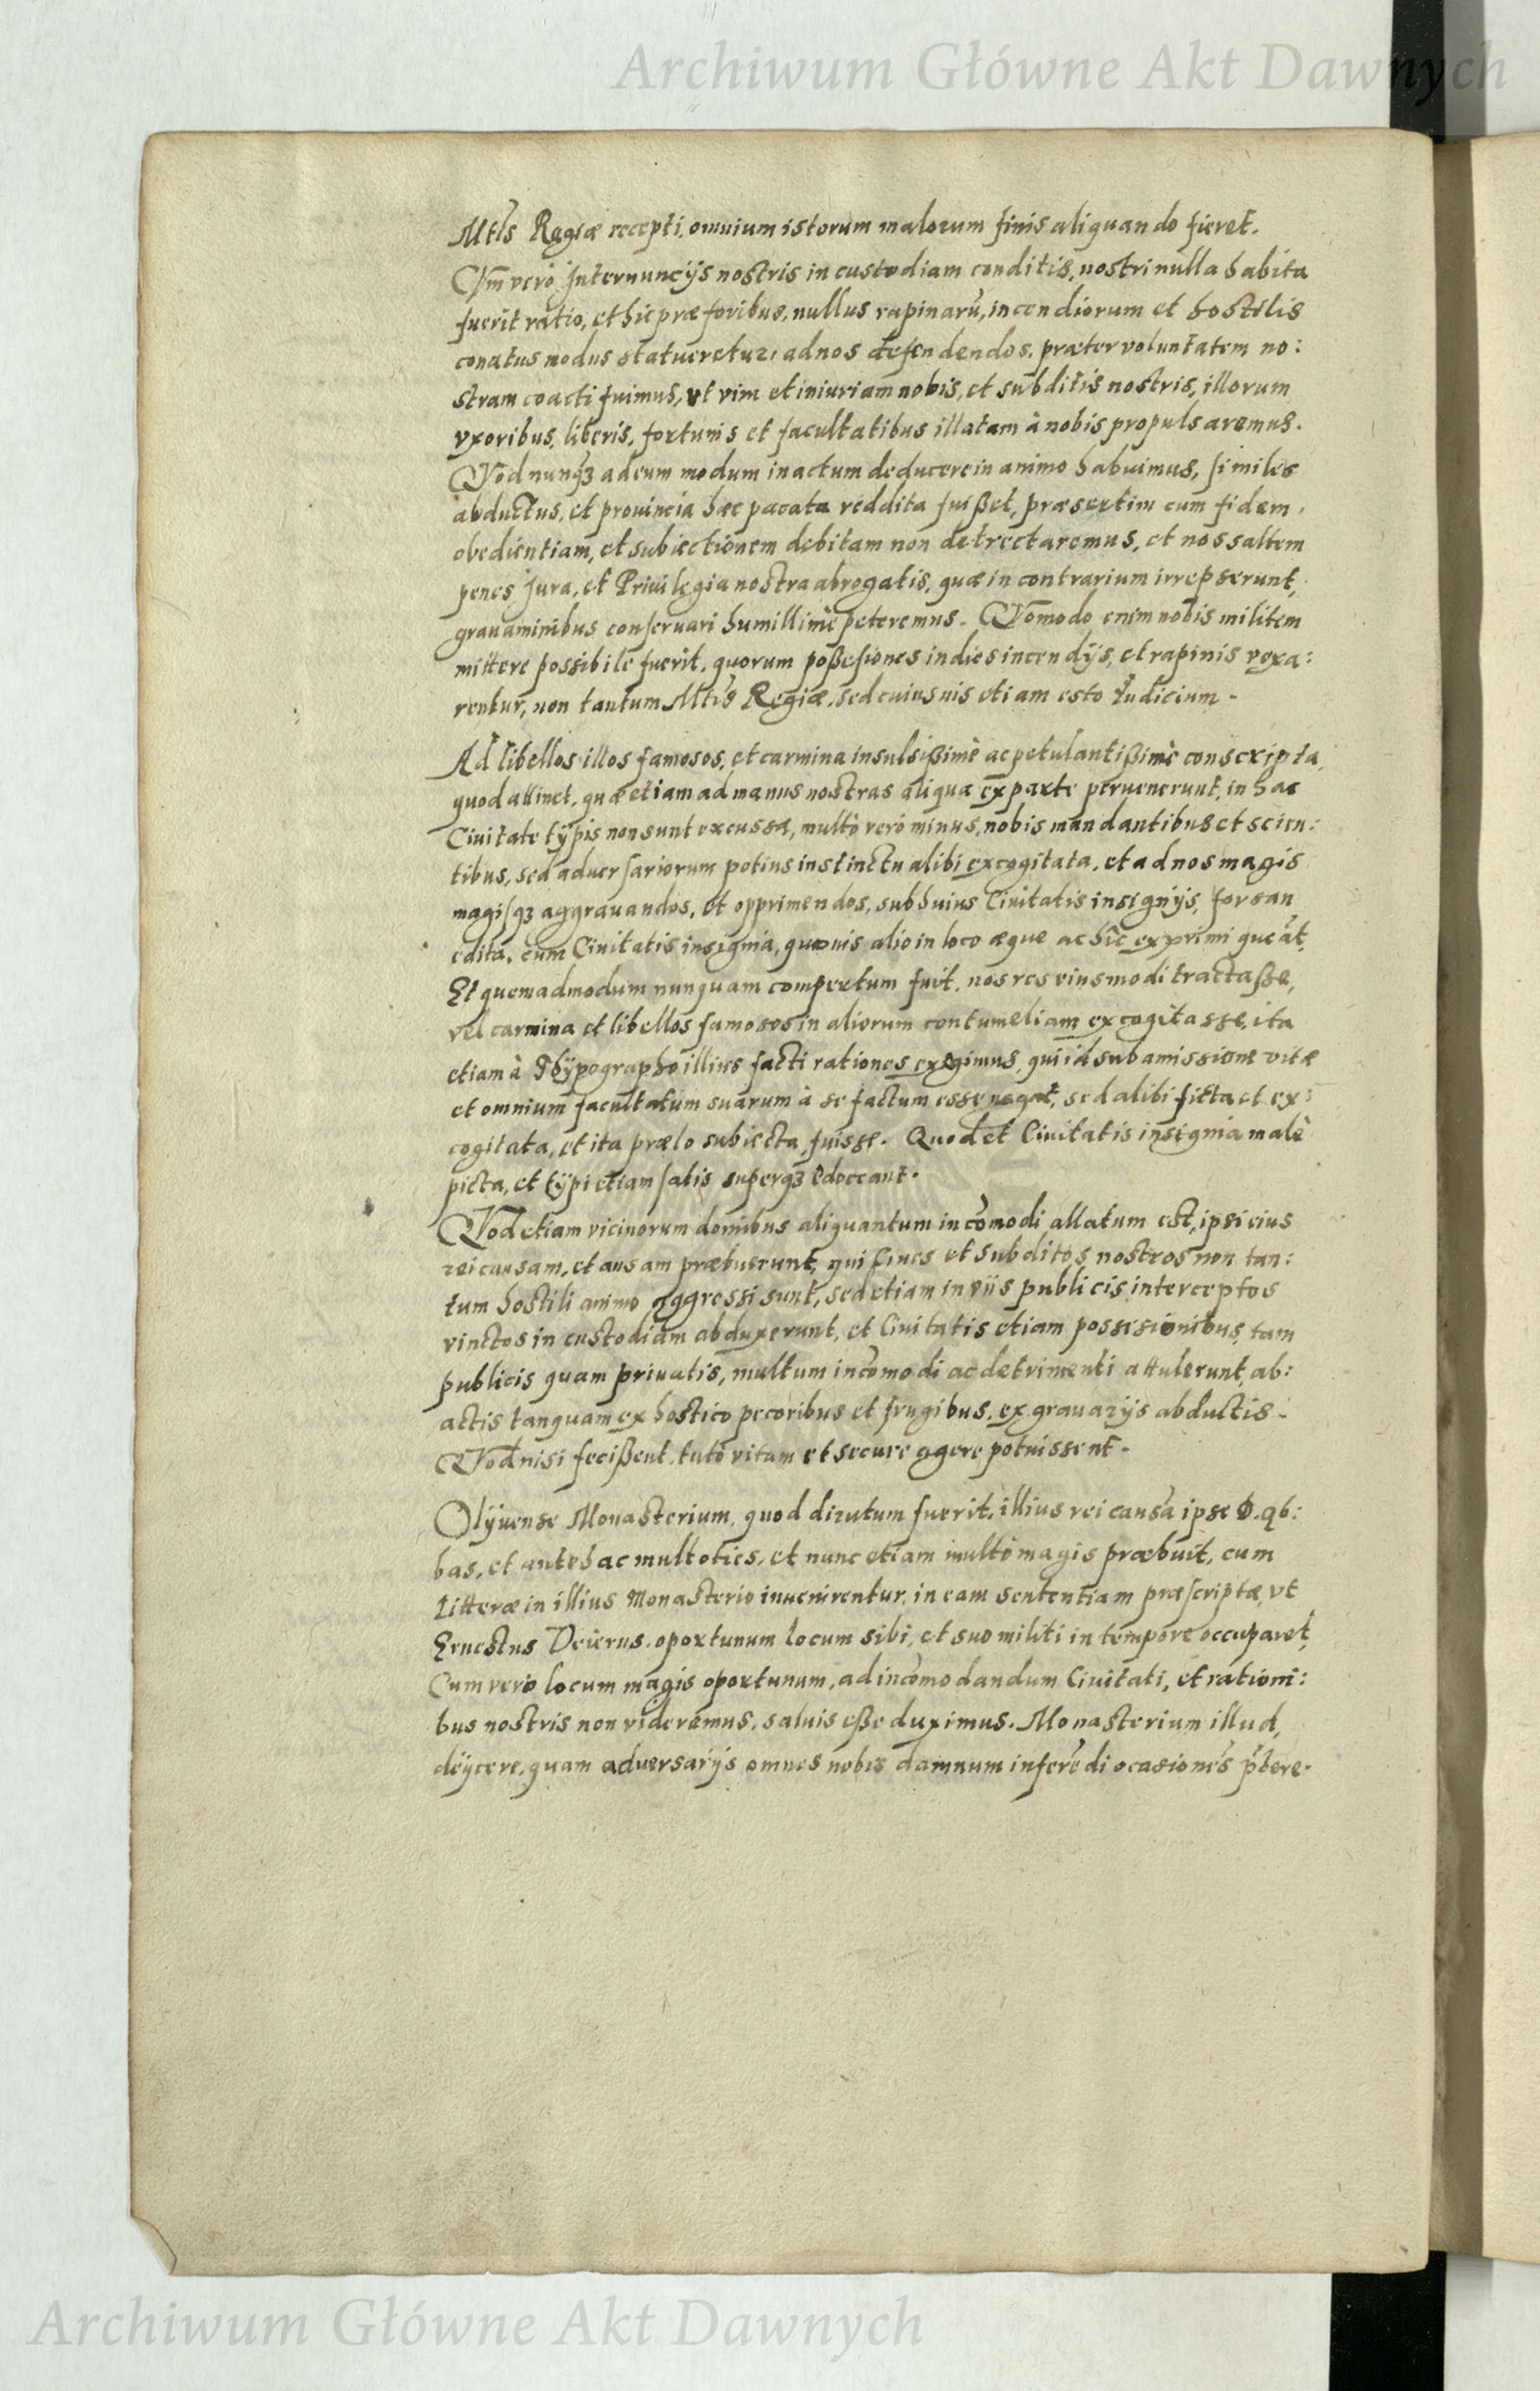 Archiwum Główne Akt Dawnych
Mtis Regiæ recepti, omnium istorum malorum finis aliquando fieret.
Cum verò Internuncijs nostris in custodiam conditis, nostri nulla habita
fuerit ratio, et hic præ foribus, nullus rapinarũ, incendiorum et hostilis
conatus modus statueretur, ad nos defendendos, præter voluntatem no:
stram coacti fuimus, vt vim et iniuriam nobis, et subditis nostris, illorum
vxoribus, liberis, fortunis et facultatibus illatam à nobis propulsaremus.
Quod nunqȝ ad eum modum in actum deducere in animo habuimus, si miles
abductus, et prouincia hæc pacata reddita fuißet, præsertim cum fidem,
obedientiam, et subiectionem debitam non detrectaremus, et nos saltem
penes Jura, et Priuilegia nostra abrogatis, quæ in contrarium irrepserunt,
grauaminibus conseruari humillimè peteremus. Quomodo enim nobis militem
mittere possibile fuerit, quorum poßesiones indies incendijs, et rapinis vexa:
rentur, non tantum Mtis Regiæ, sed cuiusuis etiam esto Iudicium.
Ad libellos illos famosos, et carmina insulsißimè ac petulantißimè conscripta,
quod attinet, quæ etiam ad manus nostras aliqua ex parte peruenerunt, in hac
Ciuitate typis non sunt excussa, multò verò minus, nobis mandantibus et scien:
tibus, sed aduersariorum potius instinctu alibi excogitata, et ad nos magis
magisqȝ aggrauandos, et opprimendos, sub huius Ciuitatis insignijs, forsan
edita, cum Ciuitatis insignia, quouis alio in loco æque ac hîc exprimi queãt,
Et quemadmodum nunquam compertum fuit, nos res eiusmodi tractaße,
vel carmina et libellos famosos in aliorum contumeliam excogitasse, ita
etiam à Thypographo illius facti rationes exegimus, qui id sub amissione vitæ
et omnium facultatum suarum à se factum esse negat, sed alibi ficta et ex:
cogitata, et ita prælo subiecta fuisse. Quod et Ciuitatis insignia malè
picta, et typi etiam satis superqȝ edoceant.
Quod etiam vicinorum domibus aliquantum incõmodi allatum est, ipsi eius
rei causam, et ansam præbuerunt, qui Ciues et subditos nostros non tan:
tum hostili animo aggressi sunt, sed etiam in viis publicis interceptos
vinctos in custodiam abduxerunt, et Ciuitatis etiam possesionibus, tam
publicis quam priuatis, multum incõmodi ac detrimenti attulerunt, ab:
actis tanquam ex hostico pecoribus et frugibus, ex granarijs abductis.
Quod nisi fecißent, tutò vitam et secure agere potuissent.
Olyuense Monasterium, quod dirutum fuerit, illius rei causã ipse D. Ab:
bas, et antehac multoties, et nunc etiam multò magis præbuit, cum
Litteræ in illius Monasterio inuenirentur, in eam sententiam præscriptæ, vt
Ernestus Veierus, oportunum locum sibi, et suo militi in tempore occuparet,
Cum verò locum magis oportunum, ad incõmodandum Ciuitati, et rationi:
bus nostris non videremus, saluis eße duximus. Monasterium illud,
deijcere, quam adversarijs omnes nobis damnum inferẽdi ocasiones p̃bere.
Archiwum Główne Akt Dawnych